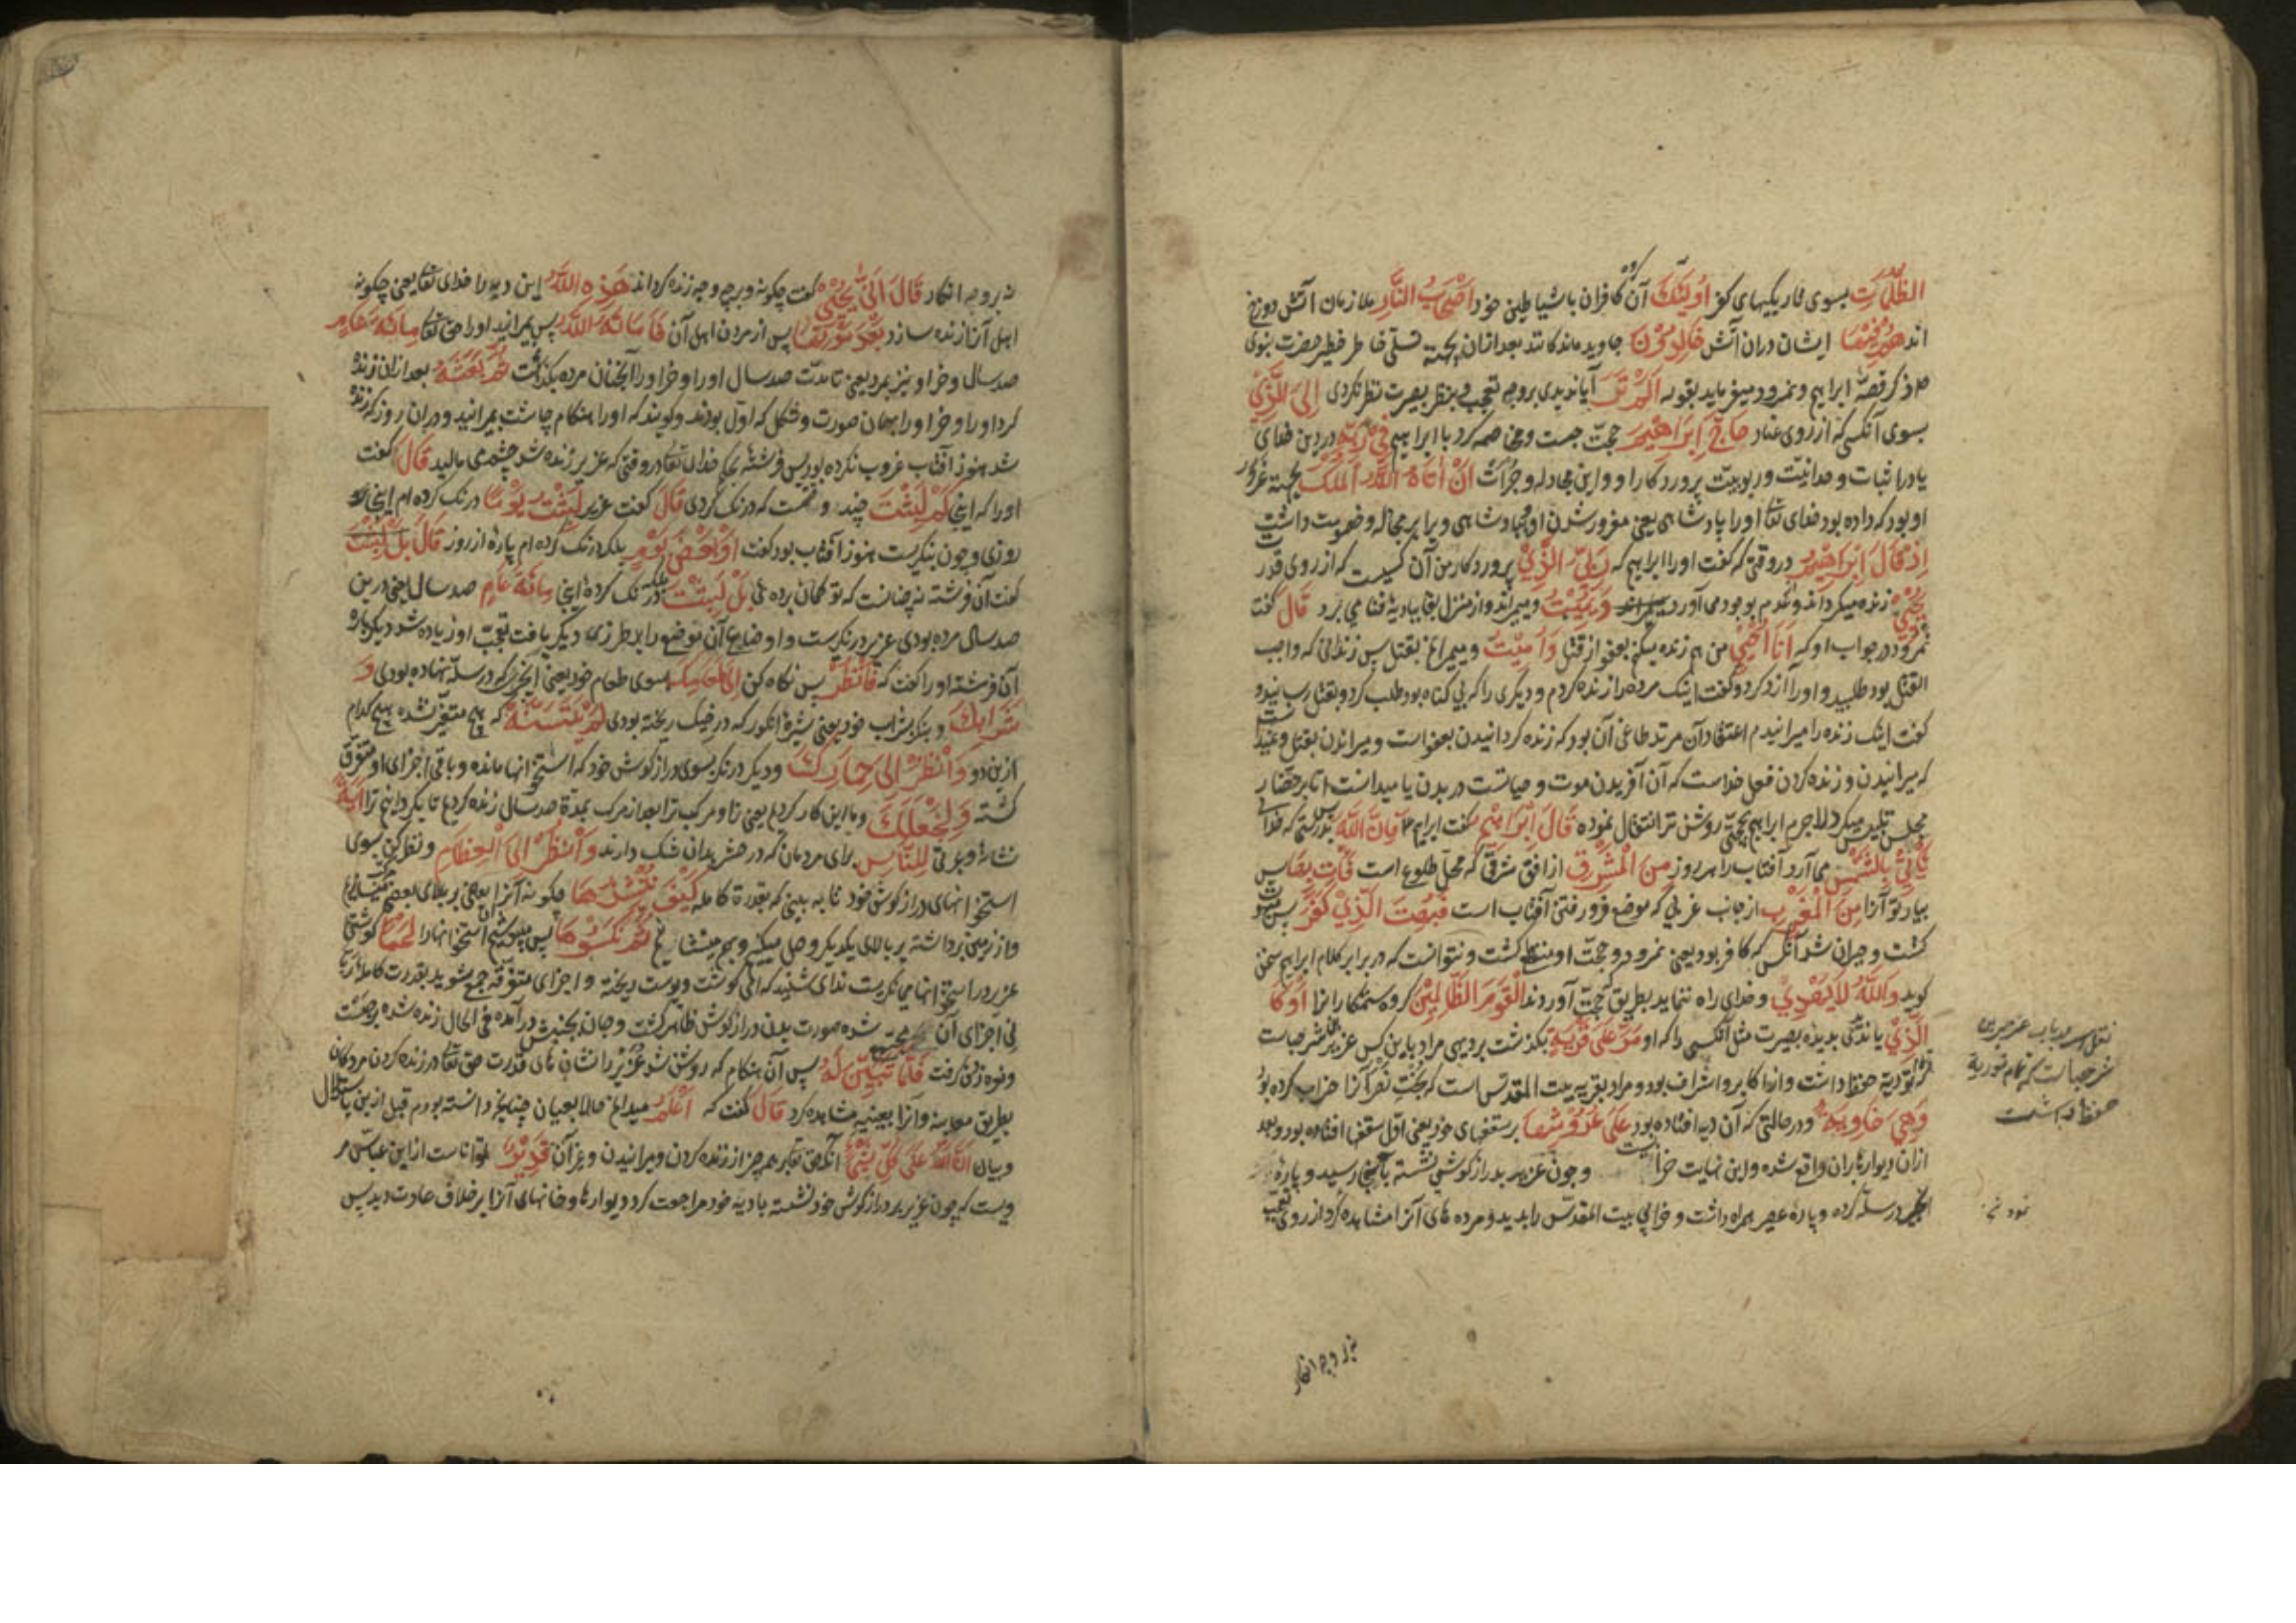 الظلمات بسوی تاریکیهای کفر اولئک آن گروه کافران باشیاطین خود اصحاب النار ملازمان آتش دوزخ
اند هم فیها ایشان دران آتش خالدون جاوید ماندکانند بعد ازان بجهة تسلی خاطر خطیر حضرت نبوی
ذکر قصهٔ ابراهیم و نمرود میفرماید بقوله الم تر آیا ندیدی بروجه تعجب و بنظر بصیرت نظر نکردی الی الذی
بسوی آنکسی که از روی عناد حاج ابراهیم حجت جست و مخاصمه کرد با ابراهیم فی ربه در دین خدای
یا در اثبات وحدانیت و ربوبیت پروردکار او و این مجادله و جرأت ان اتاه الله الملک بجهة غرور
او بود که داده بود خدای تعا اورا پادشاهی یعنی مغرور شدن او بپادشاهی ویرا بر مجادله و خصومت داشت
اذ قال ابراهیم در وقتی که کفت اورا ابراهیم که ربی الذی پروردکار من آن کسیست که از روی قدرت
یحیی زنده میکرداند و عدم بوجود می آورد و یمیت و میمیراند و از منزل بقا ببادیهٔ فنا می برد قال کفت
نمرود در جواب او که انا احیی من هم زنده میکنم بعفو از قتل و امیت و میمیرانم بقتل پس زندانی که واجب
القتل بود طلبید و اورا آزاد کرد و کفت اینک مرده را زنده کردم و دیگری را که بی کناه بود طلب کرد و بقتل رسانید و
کفت اینک زنده را میرانیدم اعتقاد آن مرتد طاغی آن بود که زنده کردانیدن بعفو است و میراندن بقتل و
که میرانیدن و زنده کردن فعل خداست که آن آفریدن موت و حیاتست در بدن یا میدانست اما بر حضار
مجلس تلبیس میکرد لاجرم ابراهیم بحجتی روشن تر انتقال نموده قال ابراهیم کفت ابراهیم فان الله بدرستی که خدای
یأتی بالشمس می آرد آفتاب را هر روز من المشرق از افق شرقی که محل طلوع است فأت بها پس
بیار تو آنرا من المغرب از جانب غربی که موضع فرو رفتن آفتاب است فبهت الذی کفر پس مبهوت
کشت و حیران شد آنکس که کافر بود یعنی نمرود و حجت او منقطع کشت و نتوانست که در برابر کلام ابراهیم سخن
کوید والله لا یهدی و خدای راه ننماید بطریق حجت آوردن القوم الظالمین کروه ستمکارانرا او کا
الذی یا ندیدی بدیدهٔ بصیرت مثل آنکسی را که او مر علی قریة بکذشت بر دیهی مراد باین کس عزیر بن شرحیاست
که توریة حفظ داشت و از اکابر و اشراف بود و مراد بقریه بیت المقدس است که بخت نصر آنرا خراب کرده بود
وهی خاویة و در حالتی که آن دیه افتاده بود علی عروشها بر سقفهای خود یعنی اول سقفها افتاده بود و بعد
ازان دیوارها بران واقع شده و این نهایت خرابیست و چون عزیر بدراز کوشی نشسته بآنجا رسید و پارهٔ
انجیر در سله کرده و پارهٔ عصیر همراه داشت و خرابی بیت المقدس را بدید و مرده های آنرا مشاهده کرد از روی تعجب
نقل است در باب عزیر بن
شرحیا است که تمام توریة
حفظ داشت
نه بر وجه انکار
نه بر وجه انکار قال انی یحیی کفت چکونه و بر چه وجه زنده کرداند هذه الله این دیه را خدای تعا یعنی چکونه
اهل آنرا زنده سازد بعد موتها پس از مردن اهل آن فاماته الله پس بمیرانید اورا حق تعا مائة عام
صد سال و خر او نیز بمرد یعنی تا مدت صد سال اورا و خر اورا آنچنان مرده بکذاشت ثم بعثه بعد ازان زنده
کرد اورا و خر اورا بهمان صورت و شکل که اول بودند و کویند که اورا هنکام چاشت بمیرانید و دران روز که زنده
شد هنوز آفتاب غروب نکرده بود پس فرشتهٔ بحکم خدای تعا در وقتی که عزیر زنده شد چشم می مالید قال کفت
اورا که اینجا کم لبثت چند وقتست که درنک کردی قال کفت عزیر لبثت یوما درنک کرده ام اینجا
روزی و چون بنکریست هنوز آفتاب بود کفت او بعض یوم بلکه درنک کرده ام پارهٔ از روز قال بل لبثت
کفت آن فرشته نه چنانست که تو کمان بردهٔ بل لبثت بلکه درنک کردهٔ اینجا مائة عام صد سال یعنی درین
صد سال مرده بودی عزیر درنکریست و اوضاع آن موضع را بر طرزی دیگر یافت تعجب او زیاده شد دیکرباره
آن فرشته اورا کفت که فانظر پس نکاه کن الی طعامک بسوی طعام خود یعنی انجیری که در سله نهاده بودی و
شرابک و بنکر بشراب خود یعنی شیرهٔ انکور که در خیک ریخته بودی لم یتسنه که هیچ متغیر نشده هیچ کدام
ازین دو وانظر الی حمارک و دیکر درنکر بسوی دراز کوش خود که استخوانها مانده و باقی اجزای او متفرق
کشته ولنجعلک و ما این کار کردیم یعنی ترا و مرکب ترا بعد از مرک بمدة صد سال زنده کردیم تا بکردانیم ترا ایة
نشانهٔ و عبرتی للناس برای مردمان که در حشر بدان شک دارند وانظر الی العظام و نظر کن بسوی
استخوانهای دراز کوش خود تا به بینی که بقدرة کامله کیف ننشزها چکونه آنرا بعضی بر بالای بعضی میسازیم
و از زمین برداشته بر بالای یکدیکر وصل میکنیم و بهم مینشانیم ثم نکسوها پس بپوشانیم آن استخوانهارا لحما کوشتی
عزیر در استخوانها می نکریست ندای شنید که ای کوشت و پوست ریخته و اجزای متفرقه جمع شوید بقدرت کامله ربانی
فی اجزای آن مجتمع شده صورت بدن دراز کوش ظاهر کشت و جان بجنبش درآمده فی الحال زنده شده برجست
و نعره زدن کرفت فلما تبین له پس آن هنکام که روشن شد عزیر را نشان های قدرت حق تعا در زنده کردن مردکان
بطریق معاینه و آنرا بعینه مشاهده کرد قال کفت که اعلم میدانم حالا بعیان چنانچه دانسته بودم قبل ازین باستدلال
و بیان ان الله علی کل شئ آنکه حق تعا بر همه چیز از زنده کردن و میرانیدن و غیر آن قدیر تواناست از ابن عباس مر
ویست که چون عزیر بر دراز کوش خود نشسته بادیه خود مراجعت کرد دیوارها و خانهای آنرا بر خلاف عادت دید پس